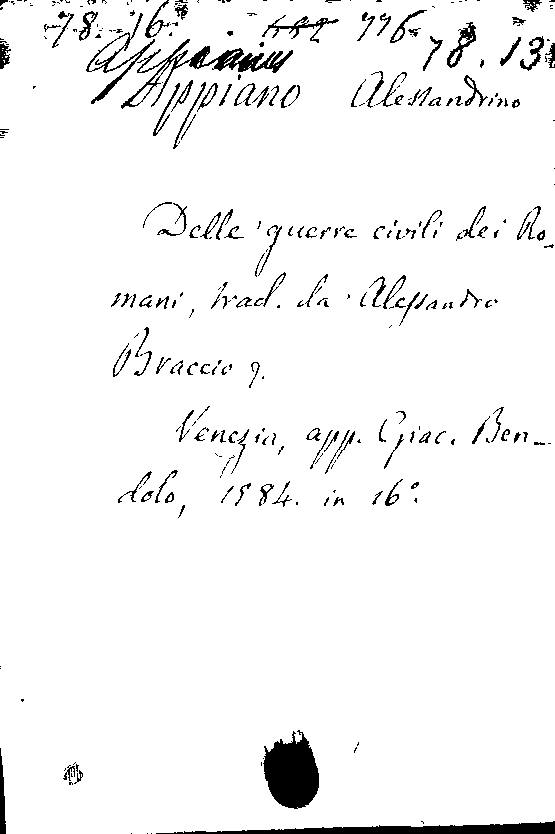 78. 16. 776
78. 13
Appianus
Appiano Alessandrino
Delle guerre civili dei Ro-
mani, trad. da Alessandro
Braccio
Venezia, app. Giac. Ben-
dolo, 1584. in 16°.